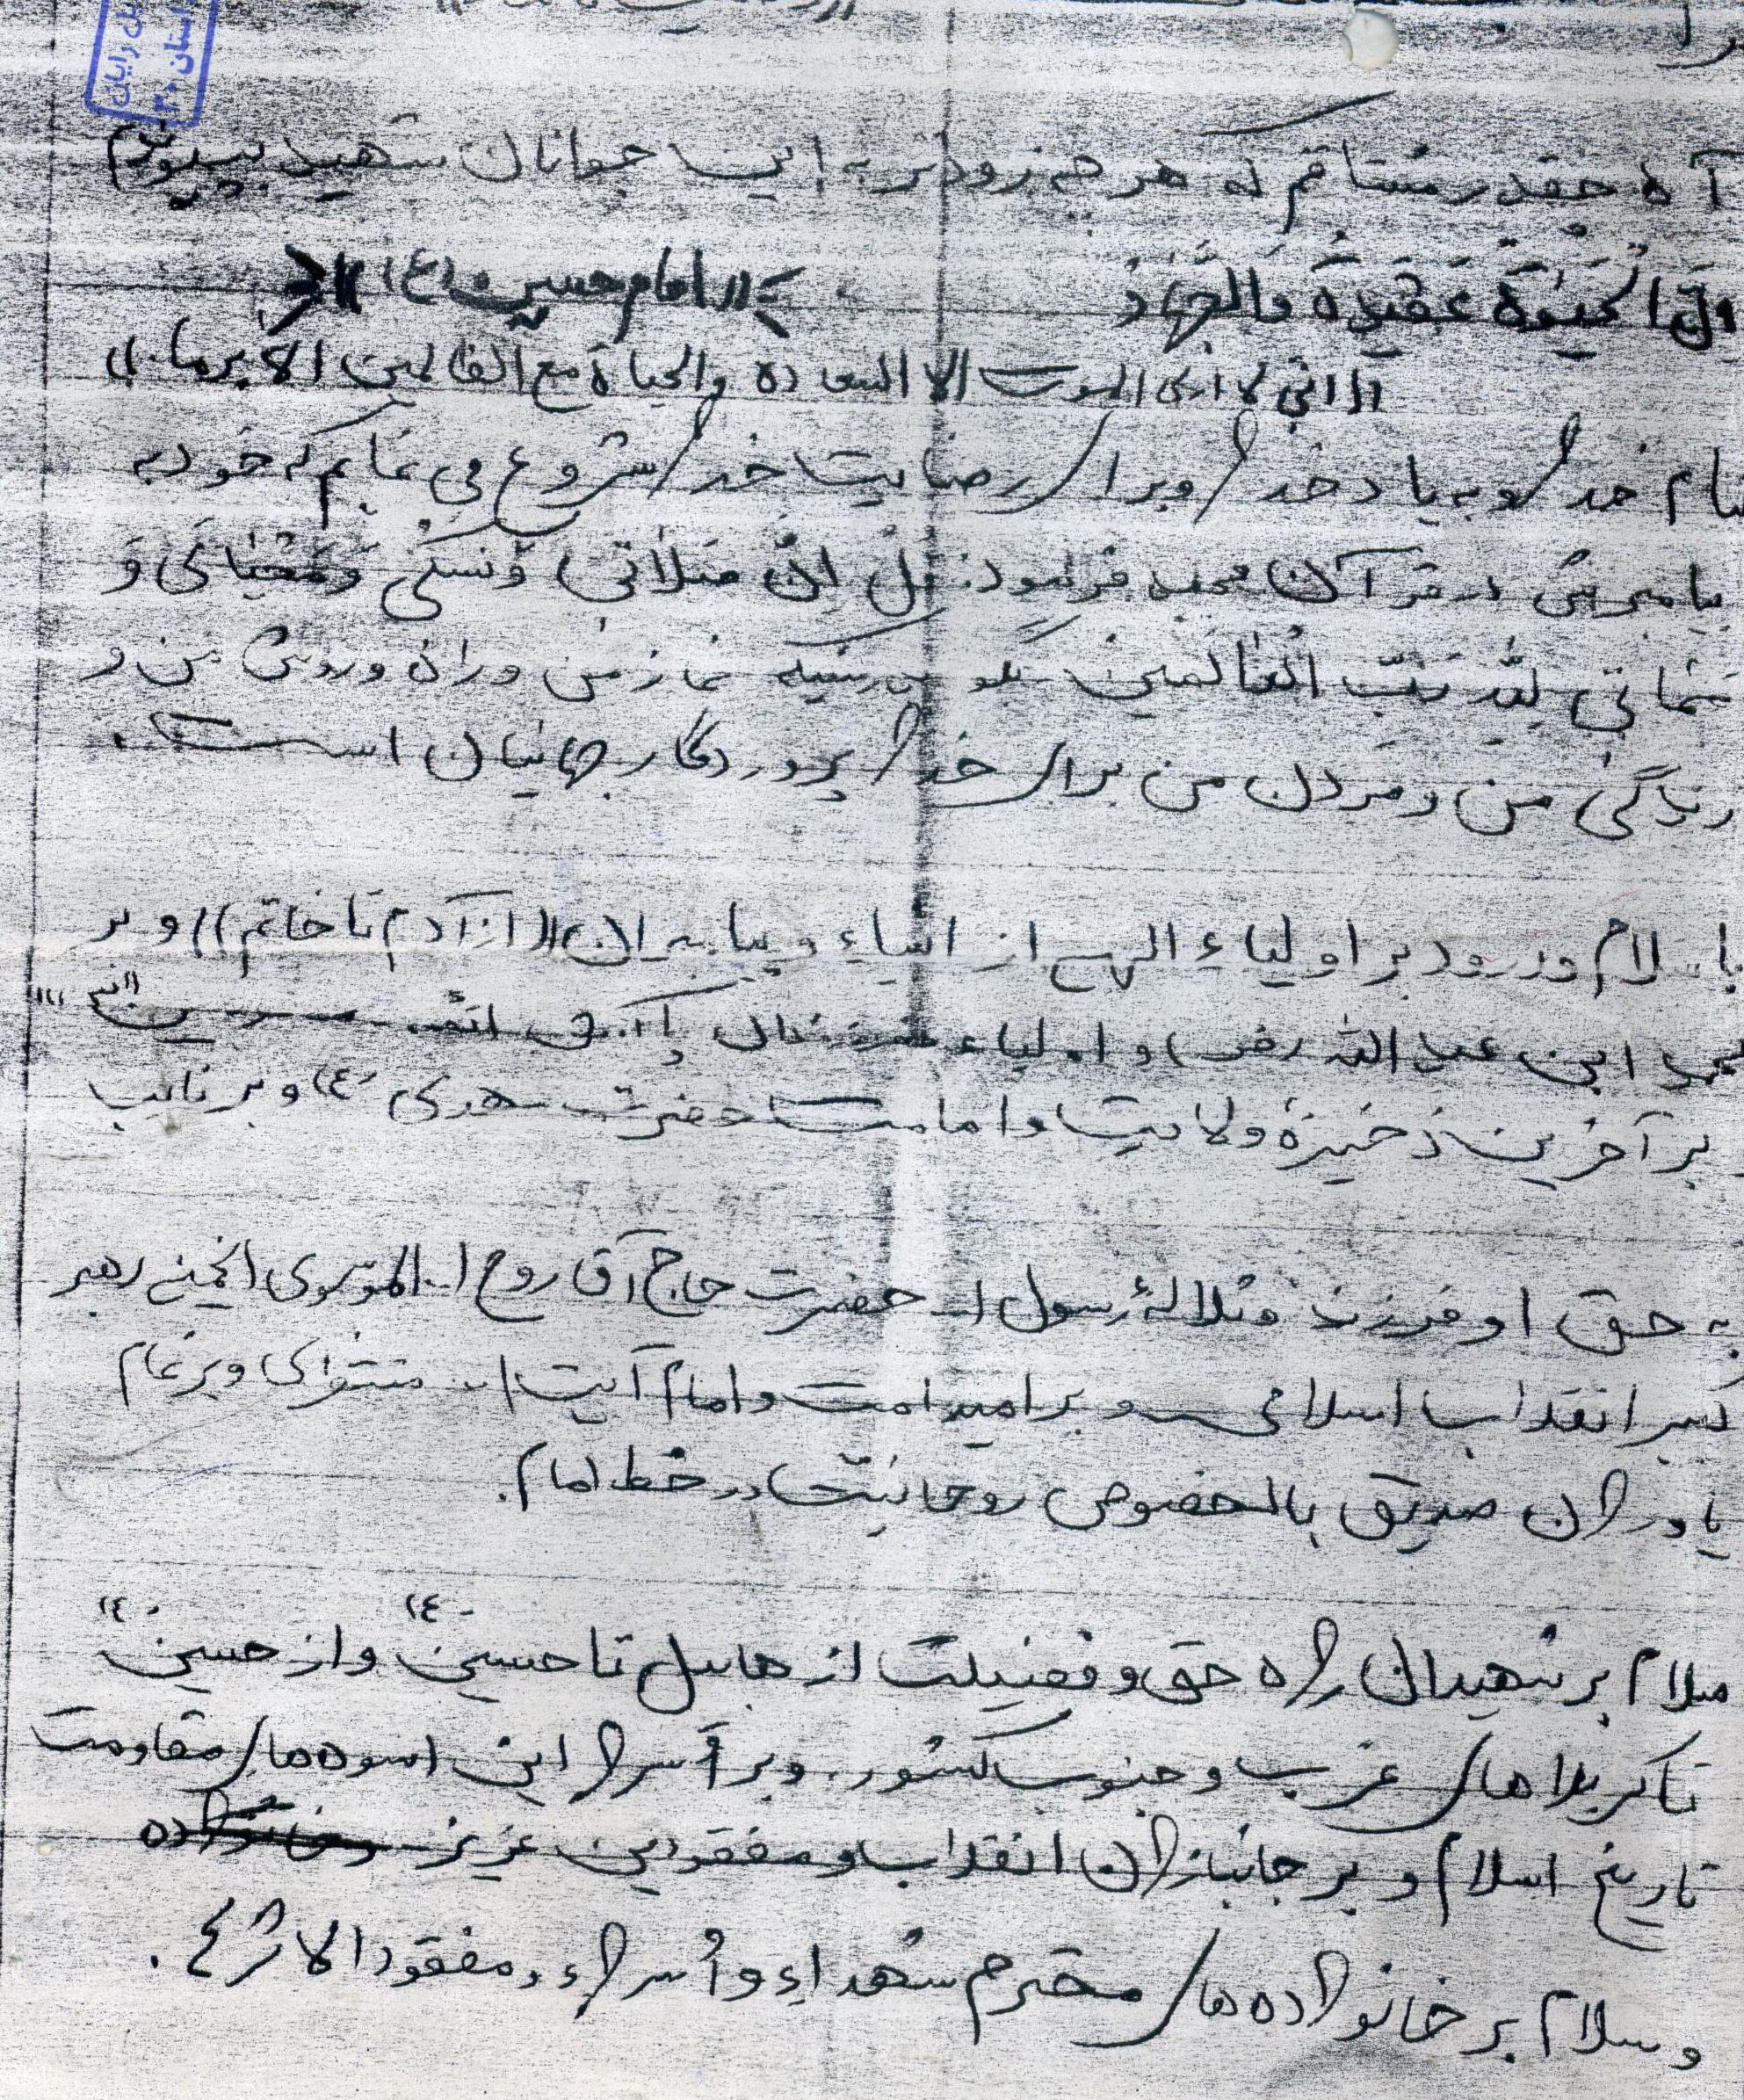 آه چقدر مشتاقم که هر چه زودتر به این جوانان شهید بپیوندم
اِنَّ الْحَیوٰةَ عَقیدَةٌ وَالْجِهادُ «امام حسین (ع)»
«انی لا اری الموت الا السعاده والحیاة مع الظالمین الا برما»
بنام خدا و به یاد خدا و برای رضایت خدا شروع می نمایم که خود به
پیامبرش در قرآن مجید فرمود: قُلْ اِنَّ صَلاتی وَ نُسُکی وَ مَحْیٰایَ وَ
مَمٰاتی لِلّهِ رَبِّ الْعٰالَمین بگو بدرستیکه نماز من و راه و روش من و
زندگی من و مردن من برای خدا پروردگار جهانیان است.
با سلام و درود بر اولیاء الهی از انبیاء و پیامبران «(از آدم تا خاتم)» و بر
محمد ابن عبد الله (ص) و اولیاء
بر آخرین ذخیرهٔ ولایت و امامت حضرت مهدی (ع) و بر نایب
به حق او فرزند سلالهٔ رسول ا... حضرت حاج آقا روح ا... الموسوی الخمینی رهبر
کبیر انقلاب اسلامی و بر امید امت و امام آیت ا... منتظری و بر تمام
یاوران صدیق بالخصوص روحانیت در خط امام.
سلام بر شهیدان راه حق و فضیلت از هابیل تا حسین (ع) و از حسین (ع)
تا کربلاهای غرب و جنوب کشور. و بر اُسرا این اسوه های مقاومت
تاریخ اسلام و بر جانبازان انقلاب و مفقودین عزیز
و سلام بر خانواده های محترم شهداء و اُسراء و مفقود الاثرها.